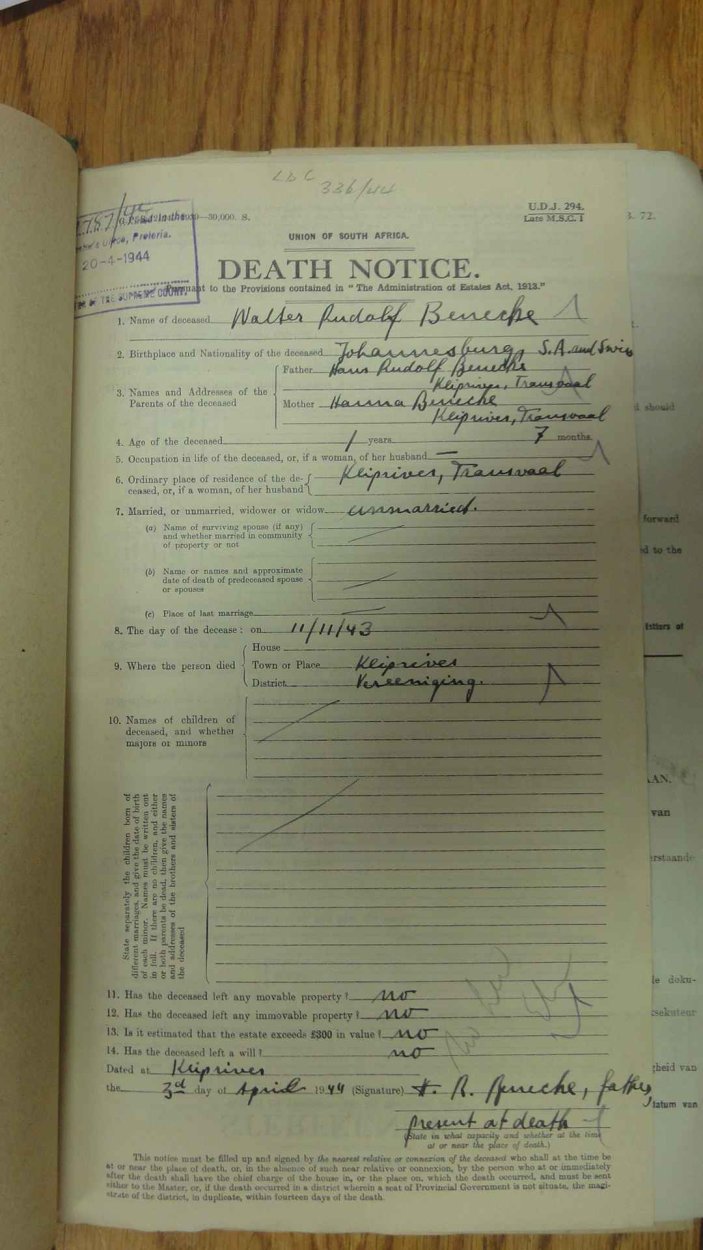 LDC
336/44
U.D.J. 294.
Late M.S.C. 1
—30,000. S.
3. 72.
Filed in the
Office, Pretoria.
20-4-1944
OF THE SUPREME COURT.
UNION OF SOUTH AFRICA.
DEATH NOTICE.
Pursuant to the Provisions contained in "The Administration of Estates Act, 1913."
1. Name of deceased Walter Rudolf Benecke
2. Birthplace and Nationality of the deceased Johannesburg, S.A. and Swiss
3. Names and Addresses of the Parents of the deceased
Father Hans Rudolf Benecke
Kliprivier, Transvaal
Mother Hanna Benecke
Kliprivier, Transvaal
4. Age of the deceased 1 years 7 months.
5. Occupation in life of the deceased, or, if a woman, of her husband —
6. Ordinary place of residence of the de-
ceased, or, if a woman, of her husband
Kliprivier, Transvaal
7. Married, or unmarried, widower or widow unmarried.
(a) Name of surviving spouse (if any)
and whether married in community
of property or not
(b) Name or names and approximate
date of death of predeceased spouse
or spouses
(c) Place of last marriage
8. The day of the decease: on 11/11/43
9. Where the person died
House
Town or Place Kliprivier
District Vereeniging.
10. Names of children of
deceased, and whether
majors or minors
State separately the children born of
different marriages, and give the date of birth
of each minor. Names must be written out
in full. If there are no children, and either
or both parents be dead, then give the names
and addresses of the brothers and sisters of
the deceased
11. Has the deceased left any movable property? no
12. Has the deceased left any immovable property? no
13. Is it estimated that the estate exceeds £300 in value? no
14. Has the deceased left a will? no
Dated at Kliprivier
the 3rd day of April 1944 (Signature) H. R. Benecke, father,
present at death
(State in what capacity and whether at the time
at or near the place of death.)
This notice must be filled up and signed by the nearest relative or connexion of the deceased who shall at the time be
at or near the place of death, or, in the absence of such near relative or connexion, by the person who at or immediately
after the death shall have the chief charge of the house in, or the place on, which the death occurred, and must be sent
either to the Master, or, if the death occurred in a district wherein a seat of Provincial Government is not situate, the magi-
strate of the district, in duplicate, within fourteen days of the death.
should
forward
d to the
AAN.
van
erstaande
doku-
ksekuteur
gheid van
datum van